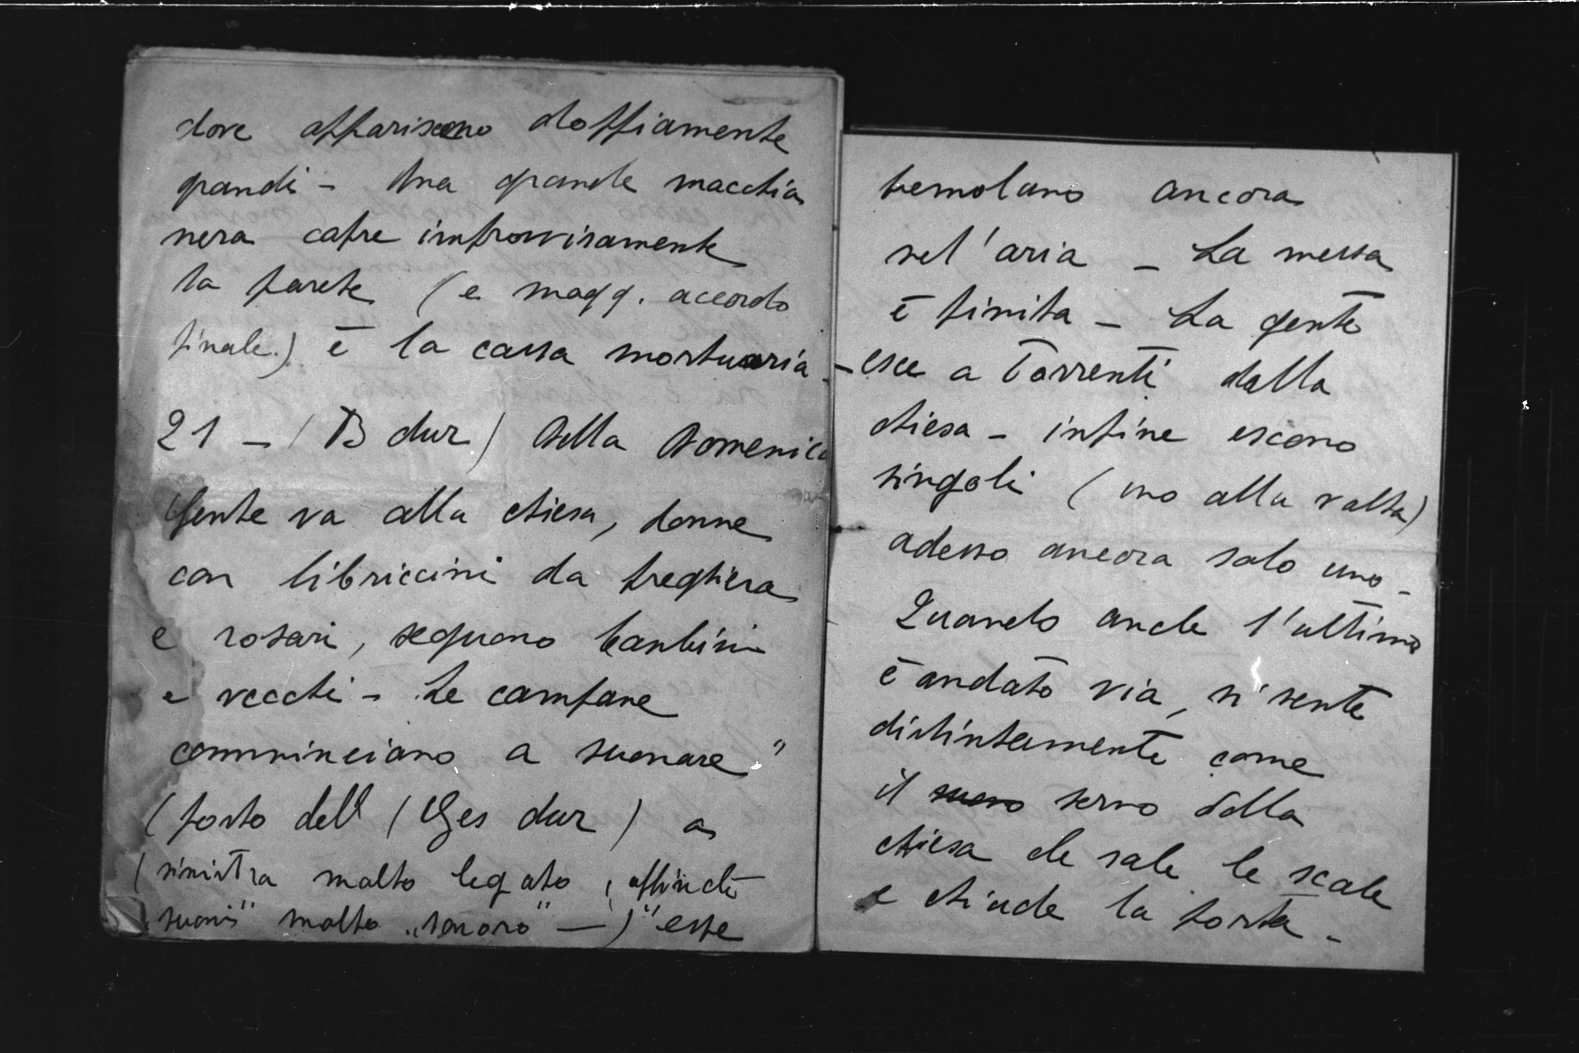 dove appariscono doppiamente
grandi - Una grande macchia
nera copre improvvisamente
la parete (e magg. accordo
finale.) è la cassa mortuaria -
21 - (B dur) Della Domenica
Gente va alla chiesa, donne
con libriccini da preghiera
e rosari, seguono banbini
e vecchi - Le campane
comminciano a suonare"
(posto dell (Ges dur) a
(sinistra molto legato, affinchè
suoni" molto „sonoro" —)" esse
tremolano ancora
nel'aria - La messa
è finita - La gente
esce a torrenti dalla
chiesa - infine escono
singoli (uno alla volta)
adesso ancora solo uno -
Quando anche l'ultimo
è andato via, si sente
distintamente come
il suono servo della
chiesa che sale le scale
e chiude la porta -